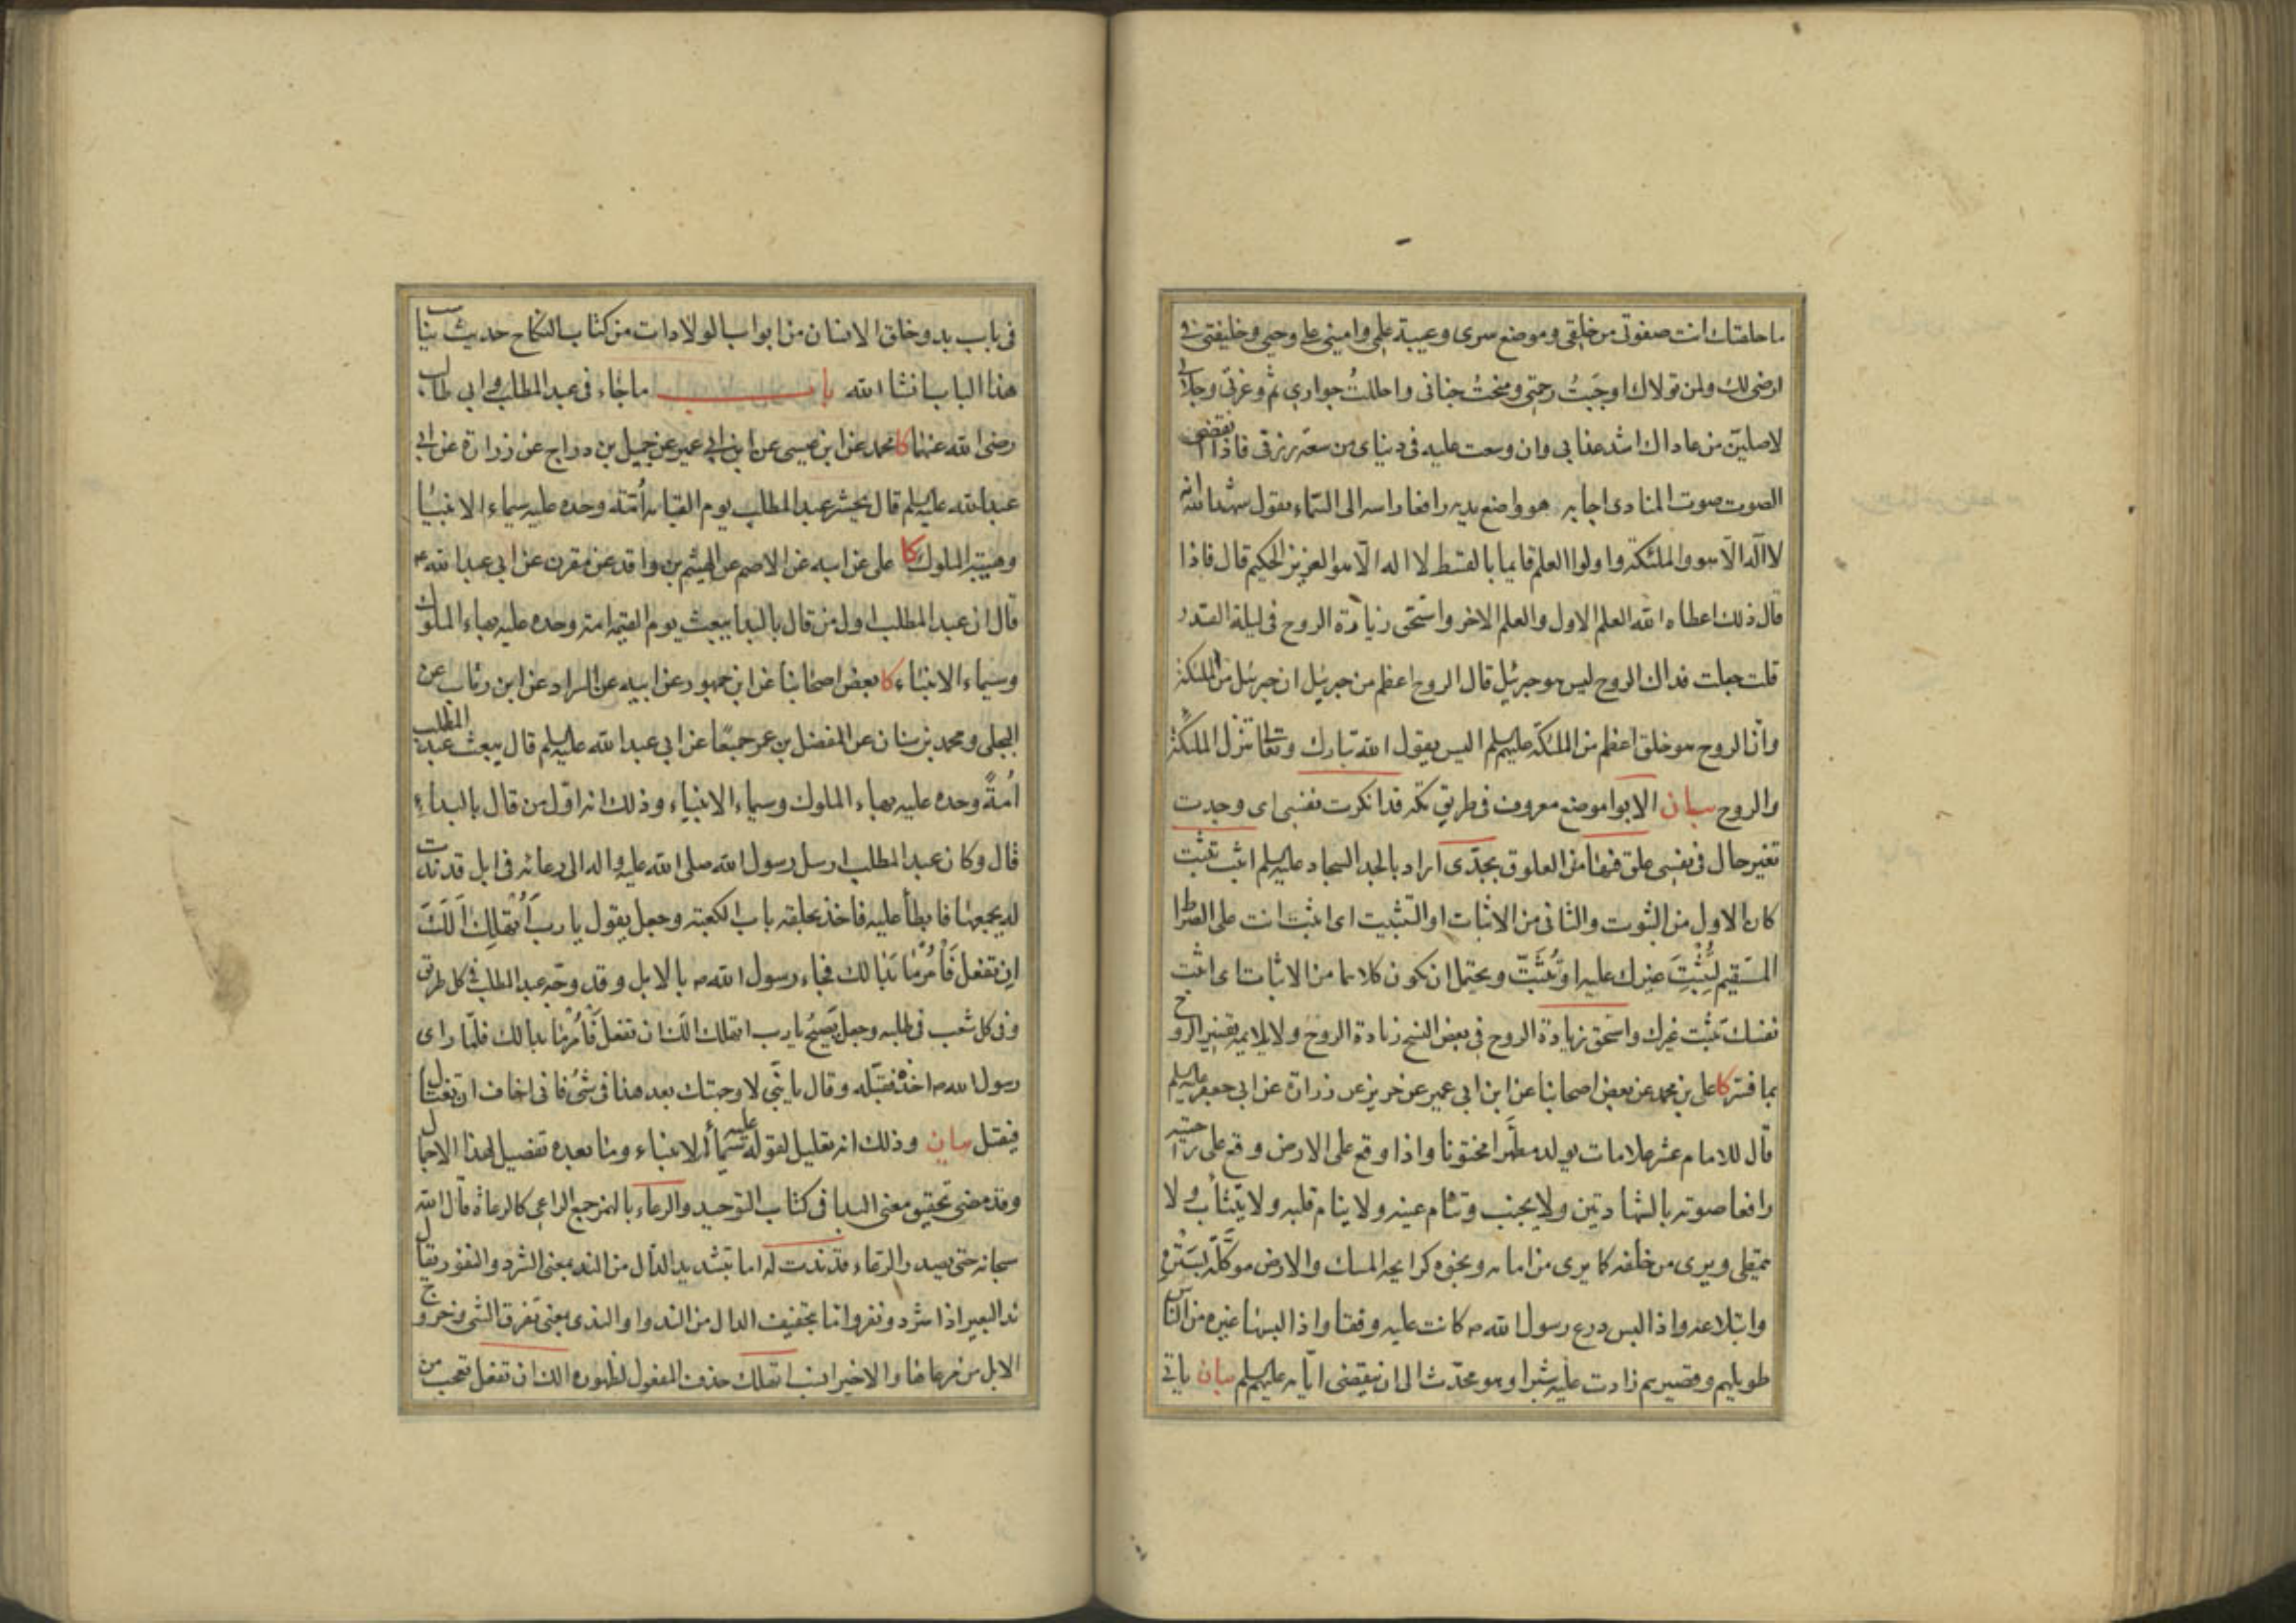 ما خلقتك انت صفوتي من خلقي وموضع سري وعيبة علمي واميني على وحيي وخليفتي في
ارضي لك ولمن تولاك اوجبتُ رحمتي ومنحتُ جناني واحللتُ جواري ثم وعزتي وجلالي
لاصلينّ من عاداك اشد عذابي وان وسعت عليه في دنياي من سعة رزقي فاذا انقضى
الصوت صوت المنادي اجابه هو واضع يديه رافعا راسه الى السماء يقول شهد الله انه
لا اله الا هو والملئكة واولوا العلم قايما بالقسط لا اله الا هو العزيز الحكيم قال فاذا
قال ذلك اعطاه الله العلم الاول والعلم الاخر واستحق زيارة الروح في ليلة القدر
قلت جعلت فداك الروح ليس هو جبرئيل قال الروح اعظم من جبرئيل ان جبرئيل من الملئكة
وان الروح هو خلق اعظم من الملئكة عليهم السلم اليس يقول الله تبارك وتعالى تنزل الملئكة
والروح بيان الابوا موضع معروف في طريق مكة قد انكرت نفسي اي وجدت
تغير حال في نفسي علق فيها من العلوق بجدّي اراد بالجد السجاد عليه السلم اثبت تثبت
كان الاول من الثبوت والثاني من الاثبات او التثبيت اي اثبت انت على الصراط
المستقيم ليُثْبِتَ غيرك عليه او تُثَبِّتْ ويحتمل ان يكون كلاهما من الاثبات اي اثبت
نفسك تثبت غيرك واستحق زيادة الروح في بعض النسخ زيادة الروح ولا يلايمه تفسير الروح
بما فسّر كا علي بن محمد عن بعض اصحابنا عن ابن ابي عمير عن حريز عن زرارة عن ابي جعفر عليه السلم
قال للامام عشر علامات يولد مطهّرا مختونا واذا وقع على الارض وقع على راحتيه
رافعا صوته بالشهادتين ولا يجنب وتنام عينه ولا ينام قلبه ولا يتثأب ولا
يتمطى ويرى من خلفه كما يرى من امامه ونجوه كرايحة المسك والارض موكّلة بستره
وابتلاعه واذا لبس درع رسول الله ص كانت عليه وفقا واذا لبسها غيره من الناس
طويلهم وقصيرهم زادت عليه شبرا وهو محدّث الى ان ينقضي ايامه عليهم السلم بيان ياتي
في باب بدو خلق الانسان من ابواب الولادات من كتاب النكاح حديث يناسب
هذا الباب انشا الله باب ما جاء في عبد المطلب وابي طالب
رضي الله عنهما كا محمد عن ابن عيسى عن ابن ابي عمير عن جميل بن دراج عن زرارة عن ابي
عبد الله عليه السلم قال يحشر عبد المطلب يوم القيامة اُمّة وحده عليه سيماء الانبيا
وهيبة الملوك كا علي عن ابيه عن الاصم عن الهيثم بن واقد عن مقرن عن ابي عبد الله ع
قال ان عبد المطلب اول من قال بالبدا يبعث يوم القيمة امة وحده عليه بهاء الملوك
وسيماء الانبياء كا بعض اصحابنا عن ابن جمهور عن ابيه عن السراد عن ابن رئاب عن
البجلي ومحمد بن سنان عن المفضل بن عمر جميعًا عن ابي عبد الله عليه السلم قال يبعث عبد المطلب
اُمةً وحده عليه بهاء الملوك وسيماء الانبياء وذلك انه اوّل من قال بالبداءِ
قال وكان عبد المطلب ارسل رسول الله صلى الله عليه واله الى رعائه في ابل قد ندّت
له يجمعها فابطأ عليه فاخذ بحلقة باب الكعبة وجعل يقول يا ربّ أتُهْلِكَ اٰلَكَ
اِن تفعل فَأَمْرٌ مّا بَدَا لك فجاء رسول الله ص بالابل وقد وجّه عبد المطلب في كل طريق
وفي كل شعب في طلبه وجعل يَصيحُ يا رب اتهلك الك ان تفعل فَأَمْرٌ مّا بدا لك فلمّا راى
رسول الله ص اخذه فقبّله وقال يا بُنَيّ لا وجهتك بعد هذا في شيء فاني اخاف ان تغتال
فتقتل بيان وذلك انه تعليل لقوله عليه سيماء الانبياء وما بعده تفصيل لهذا الاجمال
وقد مضى تحقيق معنى البدا في كتاب التوحيد والرعاء بالهمز جمع الراعي كالرعاة قال الله
سبحانه حتى يصدر الرعاء قد ندت له اما بتشديد الدال من الند بمعنى الشرد والنفور يقال
ندّ البعير اذا شرد ونفر واما بتخفيف الدال من الندو او الندي بمعنى تفرق الشي وخروج
الابل من مرعاها والاخير انسب اتهلك حذف المفعول لظهوره الك ان تفعل تعجب من